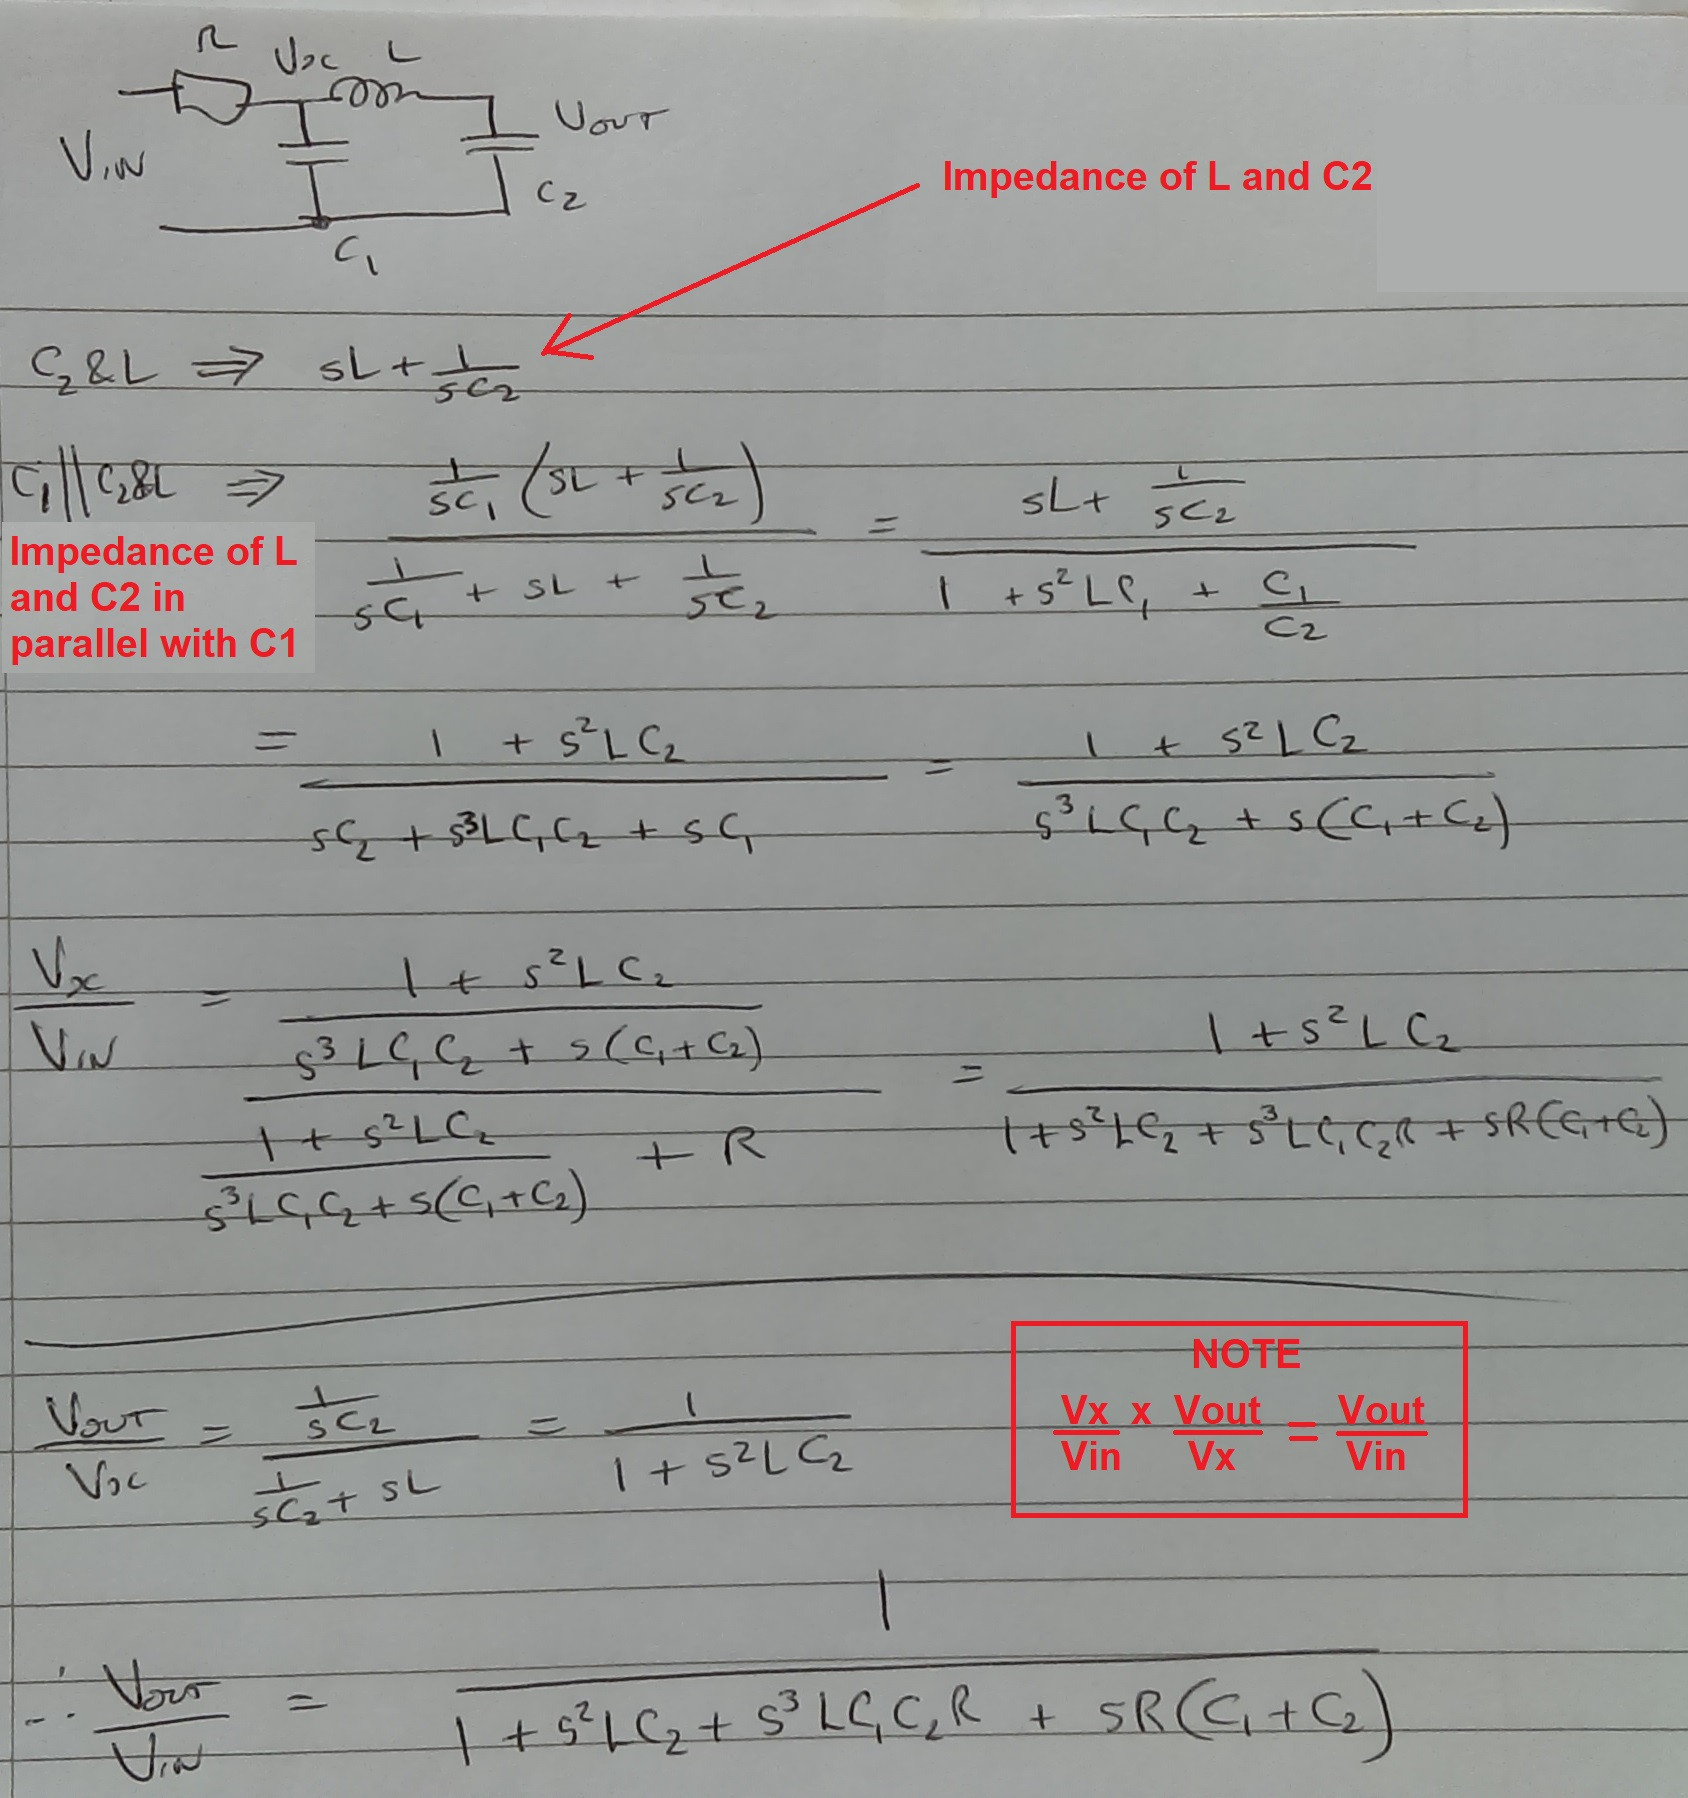 R
Vx L
VOUT
VIN
C2
C1
Impedance of L and C2
C2 & L ⇒ sL + 1/sC2
C1 || C2&L ⇒ 1/sC1 (sL + 1/sC2) / (1/sC1 + sL + 1/sC2) = (sL + 1/sC2) / (1 + s²LC1 + C1/C2)
Impedance of L
and C2 in
parallel with C1
= (1 + s²LC2) / (sC2 + s³LC1C2 + sC1) = (1 + s²LC2) / (s³LC1C2 + s(C1+C2))
Vx/VIN = ((1 + s²LC2) / (s³LC1C2 + s(C1+C2))) / ((1 + s²LC2) / (s³LC1C2 + s(C1+C2)) + R) = (1 + s²LC2) / (1 + s²LC2 + s³LC1C2R + sR(C1+C2))
VOUT/Vx = (1/sC2) / (1/sC2 + sL) = 1 / (1 + s²LC2)
NOTE
Vx/Vin x Vout/Vx = Vout/Vin
∴ VOUT/VIN = 1 / (1 + s²LC2 + s³LC1C2R + sR(C1+C2))